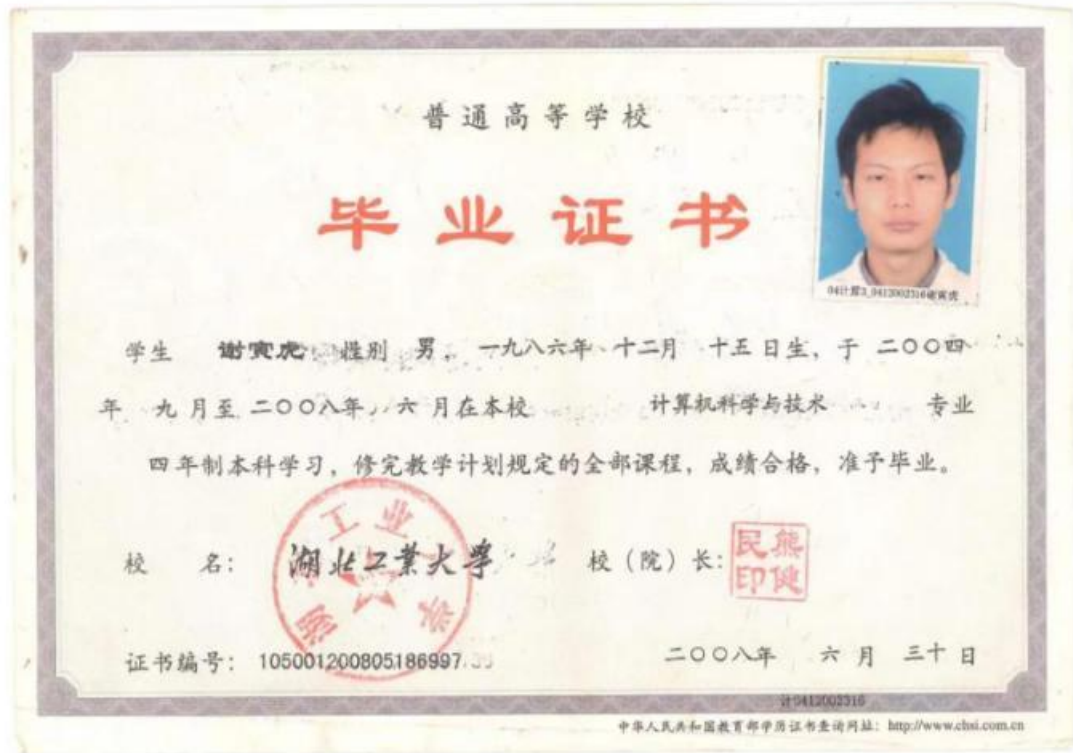 普通高等学校
毕业证书
04计算3_0412002316谢寅虎
学生 谢寅虎 性别 男, 一九八六年 十二月 十五 日生, 于 二〇〇四
年 九 月至 二〇〇八年 六 月在本校 计算机科学与技术 专业
四年制本科学习, 修完教学计划规定的全部课程, 成绩合格, 准予毕业。
校 名: 湖北工業大學 校(院)长: 熊健民印
湖北工业大学
证书编号: 105001200805186997 二〇〇八年 六 月 三十 日
计0412002316
中华人民共和国教育部学历证书查询网址: http://www.chsi.com.cn